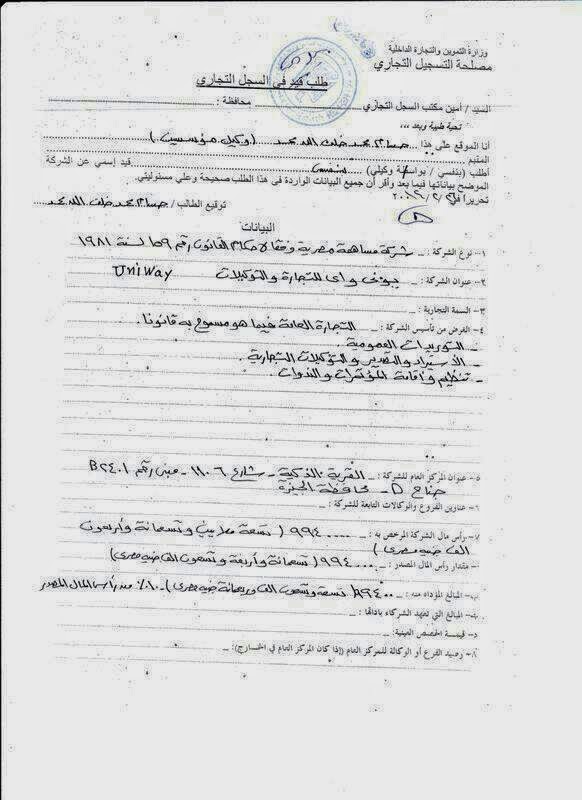 وزارة التموين والتجارة الداخلية
مصلحة التسجيل التجاري
طلب قيد في السجل التجاري
السيد / أمين مكتب السجل التجاري محافظة :
تحية طيبة وبعد ،،،
أنا الموقع على هذا حسام محمد خلف الله محمد (وكيل مؤسسين)
المقيم
أطلب (بنفسي / بواسطة وكيلي) بنفسى قيد إسمي عن الشركة
الموضح بياناتها فيما بعد وأقر أن جميع البيانات الواردة في هذا الطلب صحيحة وعلي مسئوليتي.
تحريرا في توقيع الطالب / حسام محمد خلف الله محمد
البيانات
١- نوع الشركة : شركة مساهمة مصرية وفقا لاحكام القانون رقم ١٥٩ لسنة ١٩٨١
٢- عنوان الشركة : يونى واى للتجارة والتوكيلات Uni Way
٣- السمة التجارية :
٤- الغرض من تأسيس الشركة : التجارة العامة فيما هو مسموح به قانونا .
- التوريدات العمومية .
- الأستيراد والتصدير والتوكيلات التجارية .
- تنظيم وأقامة المؤتمرات والندوات .
٥- عنوان المركز العام للشركة : القرية الذكية - شارع ١١٠٦ - مبنى رقم B٢٤٠١
جناح D - محافظة الجيزة
٦- عناوين الفروع والوكالات التابعة للشركة :
٧- رأس مال الشركة المرخص به : ( تسعة ملايين وتسعمائة وأربعون
الف جنيه مصرى )
أ- مقدار رأس المال المصدر : ٩٩٤٠٠٠ ( تسعمائة وأربعة وتسعون الف جنيه مصرى)
ب- المبالغ المؤداه منه : ٩٩٤٠٠ ( تسعة وتسعون الف وربعمائة جنيه مصرى ) ١٠٪ من رأس المال المصدر
ج- المبالغ التي تعهد الشركاء بادائها :
د- قيمة الحصص العينية:
٨- رصيد الفرع أو الوكالة للمركز العام (إذا كان المركز العام في الخارج):